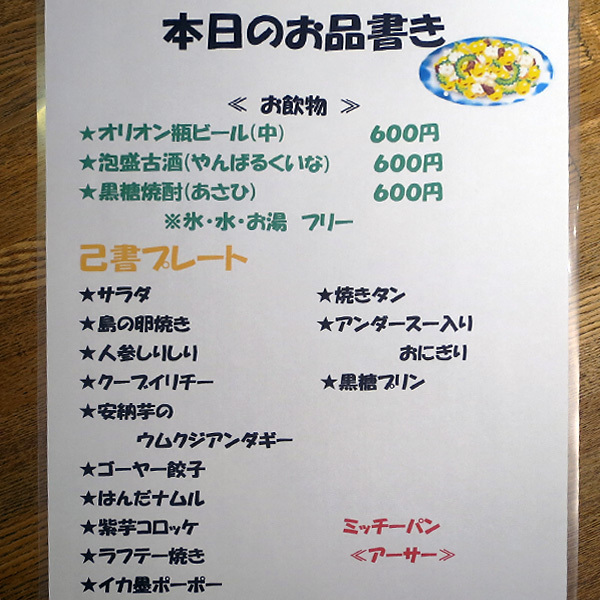 本日のお品書き
≪ お飲物 ≫
★オリオン瓶ビール(中) 600円
★泡盛古酒(やんばるくいな) 600円
★黒糖焼酎(あさひ) 600円
※氷・水・お湯 フリー
己書プレート
★サラダ
★島の卵焼き
★人参しりしり
★クーブイリチー
★安納芋の
ウムクジアンダギー
★ゴーヤー餃子
★はんだナムル
★紫芋コロッケ
★ラフテー焼き
★イカ墨ポーポー
★焼きタン
★アンダースー入り
おにぎり
★黒糖プリン
ミッチーパン
≪アーサー≫